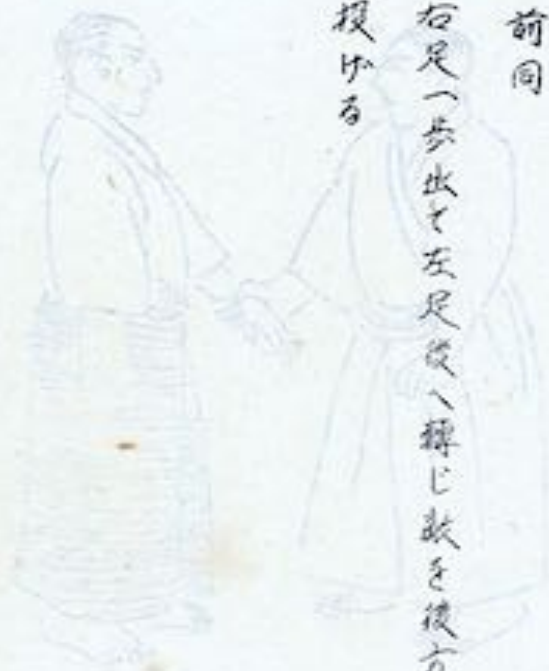 前同
右足一歩出て左足後へ轉じ敵を後方
投げる